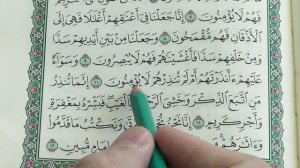 فَهُمْ لَا يُؤْمِنُونَ ٧ إِنَّا جَعَلْنَا فِىٓ أَعْنَٰقِهِمْ أَغْلَٰلًا فَهِىَ إِلَى
ٱلْأَذْقَانِ فَهُم مُّقْمَحُونَ ٨ وَجَعَلْنَا مِنۢ بَيْنِ أَيْدِيهِمْ سَدًّا
وَمِنْ خَلْفِهِمْ سَدًّا فَأَغْشَيْنَٰهُمْ فَهُمْ لَا يُبْصِرُونَ ٩ وَسَوَآءٌ
عَلَيْهِمْ ءَأَنذَرْتَهُمْ أَمْ لَمْ تُنذِرْهُمْ لَا يُؤْمِنُونَ ١٠ إِنَّمَا تُنذِرُ
مَنِ ٱتَّبَعَ ٱلذِّكْرَ وَخَشِىَ ٱلرَّحْمَٰنَ بِٱلْغَيْبِ فَبَشِّرْهُ بِمَغْفِرَةٍ
وَأَجْرٍ كَرِيمٍ ١١ إِنَّا نَحْنُ نُحْىِ ٱلْمَوْتَىٰ وَنَكْتُبُ مَا قَدَّمُوا۟
وَءَاثَٰرَهُمْ إِمَامٍ مُّبِينٍ ١٢